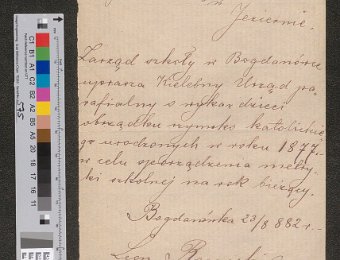 w
Jeziernie.
Zarząd szkoły w Bogdanówce
uprasza Urząd pa-
rafialny o wykaz dzieci
obrządku rzymsko katolickie
go urodzonych w roku 1877.-
w celu sporządzenia metry-
ki szkolnej na rok bieżący.
Bogdanówka 23/8 882 r.-
Leon
C1 B1 A1 C2 B2 A2 B5 A5 20 18 17 16 11